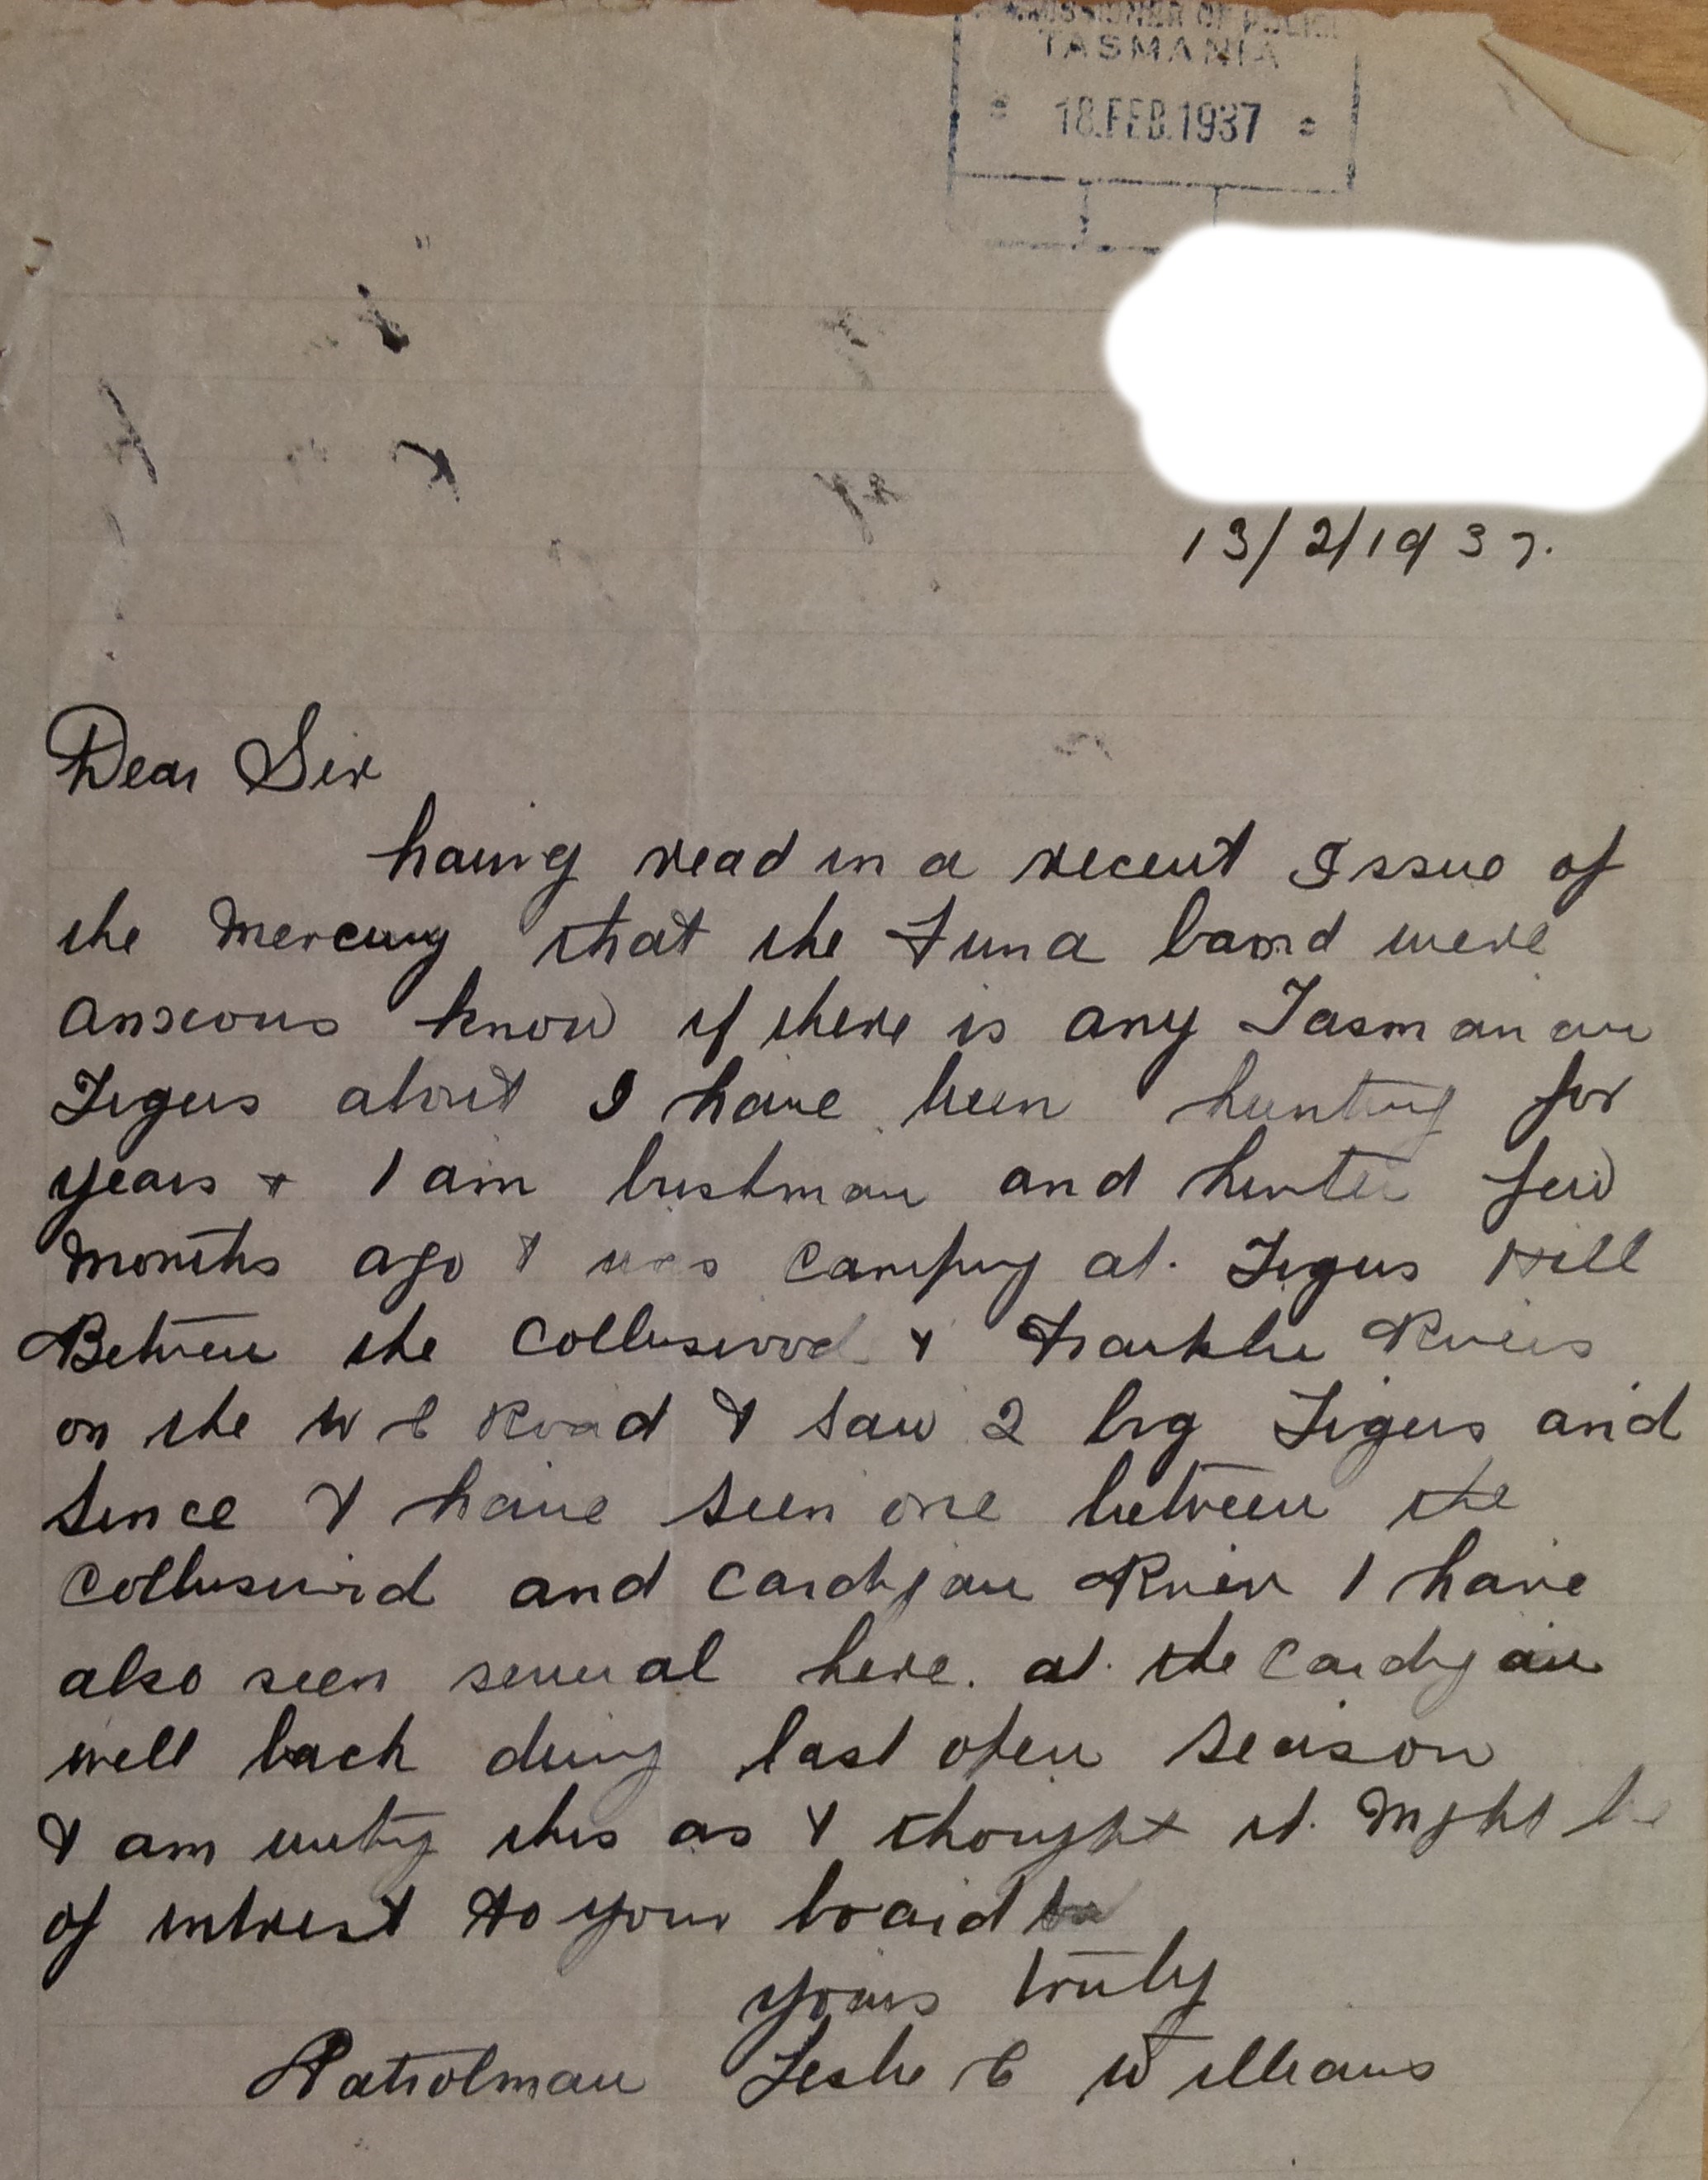 COMMISSIONER OF POLICE
TASMANIA
18.FEB.1937
13/2/1937.
Dear Sir
having read in a recent Issue of
the Mercury that the Funa board were
anxious know if there is any Tasmanan
Tigers about I have been hunting for
years + I am bushman and hunter few
months ago I was camping at Tigers Hill
Between the Collinswood & Franklin Rivers
on the W C Road I saw 2 big Tigers and
Since I have seen one between the
Collinswood and Cardigan River I have
also seen several here. at the Cardigan
well back during last open season
I am writing this as I thought it might be
of intrest to your board
yours truly
Patrolman Leslie C Williams